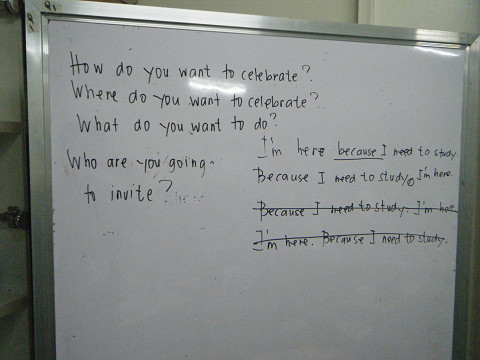 How do you want to celebrate?
Where do you want to celebrate?
What do you want to do?
Who are you going
to invite?
I'm here because I need to study
Because I need to study, I'm here.
Because I need to study. I'm here.
I'm here. Because I need to study.